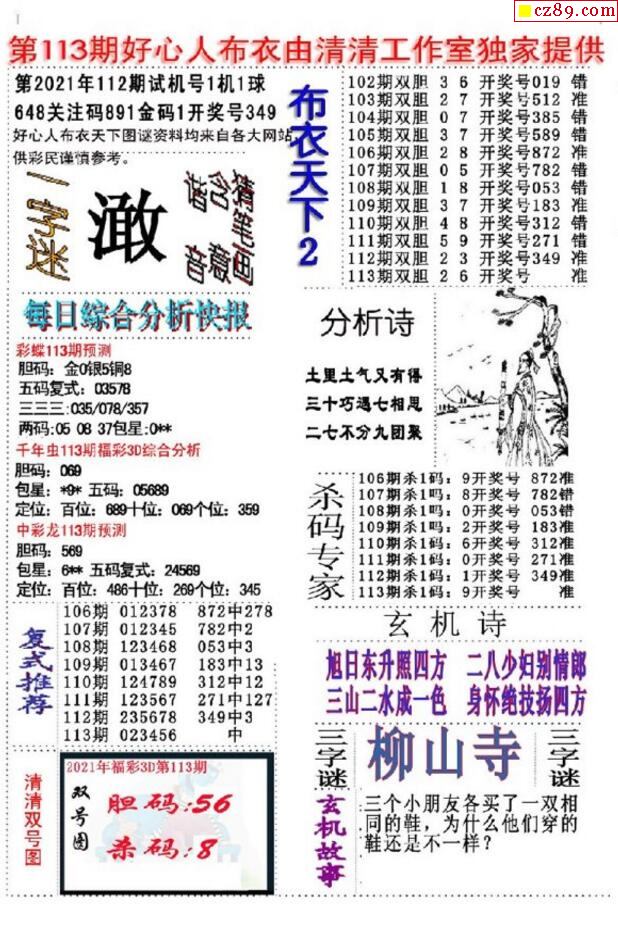 cz89.com
第113期好心人布衣由清清工作室独家提供
第2021年112期试机号1机1球
648关注码891金码1开奖号349
好心人布衣天下图谜资料均来自各大网站,
供彩民谨慎参考。
一字迷
澉
猜笔画
含意
谐音
布衣天下2
102期双胆 3 6 开奖号019 错
103期双胆 2 7 开奖号512 准
104期双胆 0 7 开奖号385 错
105期双胆 3 7 开奖号589 错
106期双胆 2 8 开奖号872 准
107期双胆 0 5 开奖号782 错
108期双胆 1 8 开奖号053 错
109期双胆 3 7 开奖号183 准
110期双胆 4 8 开奖号312 错
111期双胆 5 9 开奖号271 错
112期双胆 2 3 开奖号349 准
113期双胆 2 6 开奖号 准
每日综合分析快报
彩蝶113期预测
胆码：金0银5铜8
五码复式：03578
三三三:035/078/357
两码:05 08 37包星:0**
千年虫113期福彩3D综合分析
胆码：069
包星：*9* 五码：05689
定位：百位：689十位：069个位：359
中彩龙113期预测
胆码：569
包星：6** 五码复式：24569
定位：百位：486十位：269个位：345
分析诗
土里土气又有得
三十巧遇七相思
二七不分九团聚
杀码专家
106期杀1码：9开奖号 872准
107期杀1吗：8开奖号 782错
108期杀1吗：0开奖号 053错
109期杀1吗：2开奖号 183准
110期杀1码：6开奖号 312准
111期杀1码：0开奖号 271准
112期杀1码：1开奖号 349准
113期杀1码：9开奖号 准
复式推荐
106期 012378 872中278
107期 012345 782中2
108期 123468 053中3
109期 013467 183中13
110期 124789 312中12
111期 123567 271中127
112期 235678 349中3
113期 023456 中
玄机诗
旭日东升照四方 二八少妇别情郎
三山二水成一色 身怀绝技扬四方
三字谜
柳山寺
三字谜
清清双号图
2021年福彩3D第113期
双号图
胆码:56
杀码:8
玄机故事
三个小朋友各买了一双相
同的鞋，为什么他们穿的
鞋还是不一样？